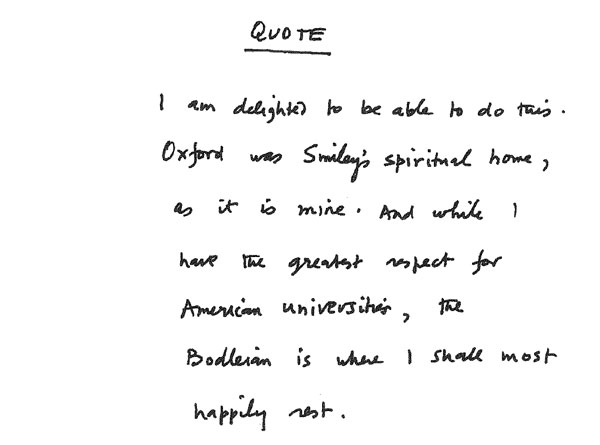 QUOTE
I am delighted to be able to do this.
Oxford was Smiley's spiritual home,
as it is mine. And while I
have the greatest respect for
American universities, the
Bodleian is where I shall most
happily rest.